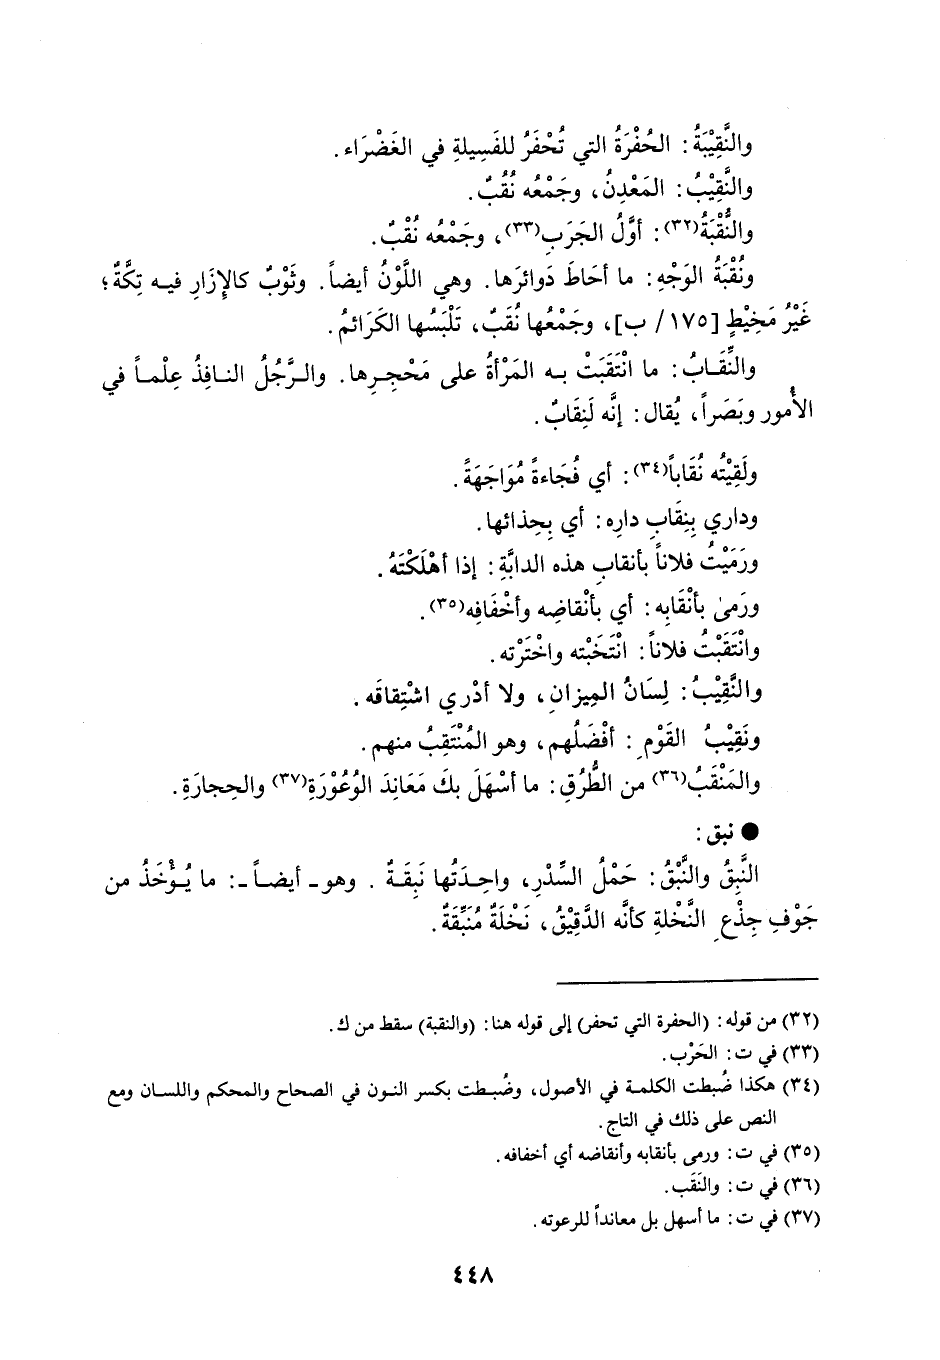 والنَّقِيْبَةُ: الحُفْرَةُ التي تُحْفَرُ للفَسِيلةِ في الغَضْرَاء.
والنَّقِيْبُ: المَعْدِنُ، وجَمْعُه نُقُبٌ.
والنُّقْبَةُ(٣٢): أوَّلُ الجَرَبِ(٣٣)، وجَمْعُه نُقْبٌ.
ونُقْبَةُ الوَجْهِ: ما أحَاطَ دَوائرَها. وهي اللَّوْنُ أيضاً. وثَوْبٌ كالإِزَارِ فيه تِكَّةٌ؛
غَيْرُ مَخِيْطٍ [١٧٥/ ب]، وجَمْعُها نُقَبٌ، تَلْبَسُها الكَرَائمُ.
والنِّقَابُ: ما انْتَقَبَتْ به المَرْأةُ على مَحْجِرِها. والرَّجُلُ النافِذُ عِلْماً في
الأُمور وبَصَراً، يُقال: إنَّه لَنِقَابٌ.
ولَقِيْتُه نُقَاباً(٣٤): أي فُجَاءةً مُوَاجَهَةً.
وداري بِنِقَابِ دارِه: أي بِحِذائها.
ورَمَيْتُ فلاناً بأنقابِ هذه الدابَّةِ: إذا أهْلَكْتَهُ.
ورَمىٰ بأنْقَابِه: أي بأنْقاضِه وأخْفَافِه(٣٥).
وانْتَقَبْتُ فلاناً: انْتَخَبْته واخْتَرْته.
والنَّقِيْبُ: لِسَانُ المِيزانِ، ولا أدْري اشْتِقاقَه.
ونَقِيْبُ القَوْمِ: أفْضَلُهم، وهو المُنْتَقِبُ منهم.
والمَنْقَبُ(٣٦) من الطُّرُقِ: ما أسْهَلَ بكَ مَعَانِدَ الوُعُوْرَةِ(٣٧) والحِجارَةِ.
● نبق:
النَّبِقُ والنَّبْقُ: حَمْلُ السِّدْرِ، واحِدَتُها نَبِقَةٌ. وهو ـ أيضاً ـ: ما يُؤْخَذُ من
جَوْفِ جِذْعِ النَّخْلةِ كأنَّه الدَّقِيْقُ، نَخْلَةٌ مُنَبِّقَةٌ.
(٣٢) من قوله: (الحفرة التي تحفر) إلى قوله هنا: (والنقبة) سقط من ك.
(٣٣) في ت: الحَرْب.
(٣٤) هكذا ضُبطت الكلمة في الأصول، وضُبطت بكسر النون في الصحاح والمحكم واللسان ومع
النص على ذلك في التاج.
(٣٥) في ت: ورمى بأنقابه وأنقاضه أي أخفافه.
(٣٦) في ت: والنَقَب.
(٣٧) في ت: ما أسهل بل معانداً للرعوته.
٤٤٨